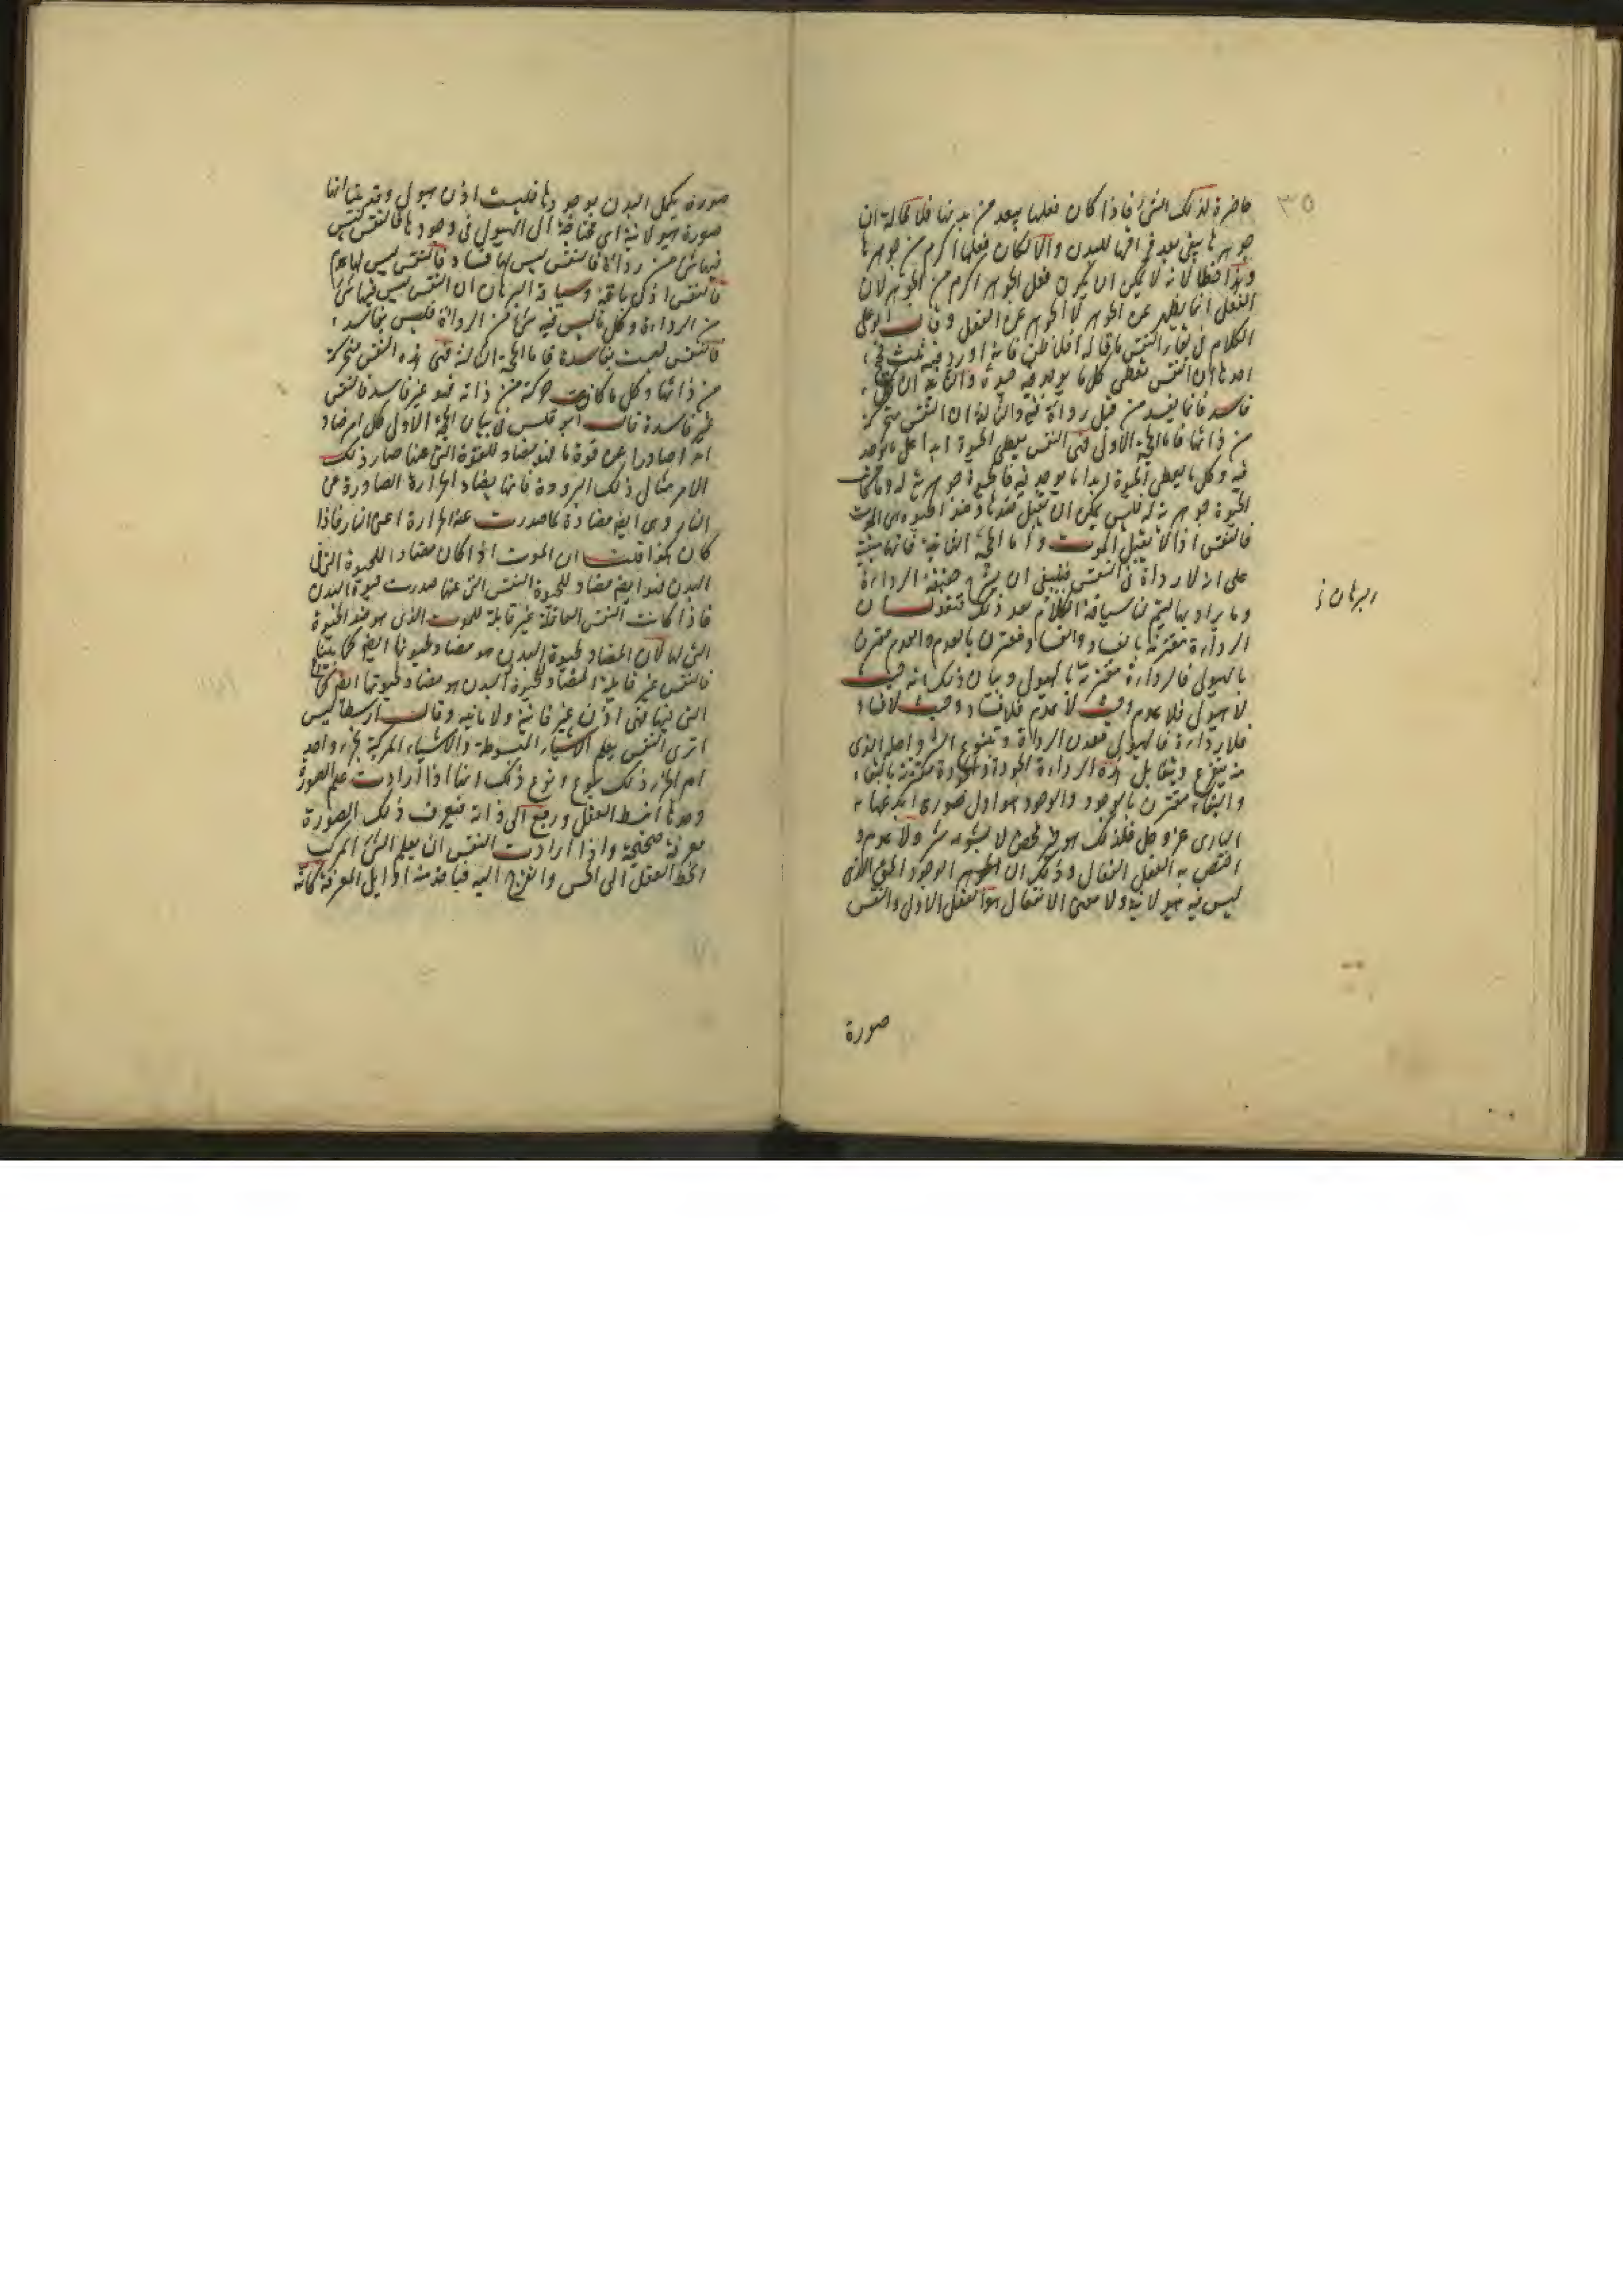 ٣٥
حاضرة لذلك الشئ فاذا كان فعلها يبعد من بدنها فلا محالة ان
جوهرها يبقى بعد فراقها للبدن والا لكان فعلها اكرم من جوهرها
وهذا خطا لانه لا يمكن ان يكون فعل الجوهر اكرم من الجوهر لان
الفعل انما يظهر عن الجوهر لا الجوهر عن الفعل وقال ابو على
الكلام فى بقاء النفس ما قاله افلاطن فانه اورد فيه ثلث حجج
احدها ان النفس تعطى كل ما يوجد فيه حيوة والثانية ان كل
فاسد فانما يفسد من قبل رداءة فيه والثالثة ان النفس متحركة
من ذاتها فاما الحجة الاولى فهى النفس يعطى الحيوة ابدا كل ما يوجد
فيه وكل ما يعطى الحيوة ابدا ما يوجد فيه فالحيوة جوهرية له وما كانت
الحيوة جوهرية له فليس يمكن ان يقبل ضدها وضد الحيوة هى الموت
فالنفس اذا لا تقبل الموت واما الحجة الثانية فانها مبنية
على انه لا رداءة فى النفس فينبغى ان يشرح حقيقة الرداءة
وما يراد بها ليتم لنا سياقة الكلام بعد ذلك فنقول ان
البرهان
الرداءة مقترنة بالفساد والفساد مقترن بالعدم والعدم مقترن
بالهيولى فالرداءة مقترنة بالهيولى وبيان ذلك انه حيث
لا هيولى فلا عدم وحيث لا عدم فلا فساد وحيث لا فساد
فلا رداءة فالهيولى معدن الرداءة وينبوع الشر واصله الذى
منه يتفرع ويقابل هذه الرداءة الجودة والجودة مقترنة بالبقاء
والبقاء مقترن بالوجود والوجود هو اول صورة ابدعها
البارى عز وجل فلذلك هو خير محض لا يشوبه شر ولا عدم و
اختص به العقل الفعال وذلك ان الجوهر الوجود الحق الذى
ليس فيه هيولانية ولا معنى الانفعال هو العقل الاول والنفس
صورة
صورة يكمل البدن بوجودها فليست اذن هيولى وقد بينا انها
صورة هيولانية اى محتاجة الى الهيولى فى وجودها فالنفس ليس
فيها شئ من رداءة فالنفس ليس لها فساد فالنفس ليس لها عدم
فالنفس اذن باقية وسياقة البرهان ان النفس ليس فيها شئ
من الرداءة وكل ما ليس فيه شئ من الرداءة فليس بفاسد
فالنفس ليست بفاسدة فاما الحجة الثالثة فهى هذه النفس متحركة
من ذاتها وكل ما كانت حركة من ذاته فهو غير فاسد فالنفس
غير فاسدة قال ابرقلس فى بيان الحجة الاولى كل امر ضاد
امرا صادرا عن قوة ما فهو مضاد للقوة التى عنها صار ذلك
الامر مثال ذلك البرودة فانها يضاد الحرارة الصادرة عن
النار وهى ايضا مضادة لما صدرت عنه الحرارة اعنى النار فاذا
كان هكذا قلت ان الموت اذا كان مضادا للحيوة التى فى
البدن فهو ايضا مضاد للحيوة النفس التى عنها صدرت حيوة البدن
فاذا كانت النفس العاقلة غير قابلة للموت الذى هو ضد الحيوة
التى لها لان المضاد لحيوة البدن هو مضاد لحيوتها ايضا كما بينا
فالنفس غير قابلة المضاد لحيوة البدن هو مضاد لحيوتها ايضا كما
التى فيها فهى اذن غير فانية ولا مائتة وقال ارسطاطاليس
اترى النفس يعلم الاشياء المبسوطة والاشياء المركبة بجزء واحد
ام الجزء ذلك ينوع وتنوع ذلك انها اذا ارادت علم الصورة
وحدها انبسط العقل ورجع الى ذاته فيعرف ذلك الصورة
معرفة صحيحة واذا ارادت النفس ان يعلم الشئ المركب
انحط العقل الى الحس وانفرج اليه فياخذ منه اوايل المعرفة كانه